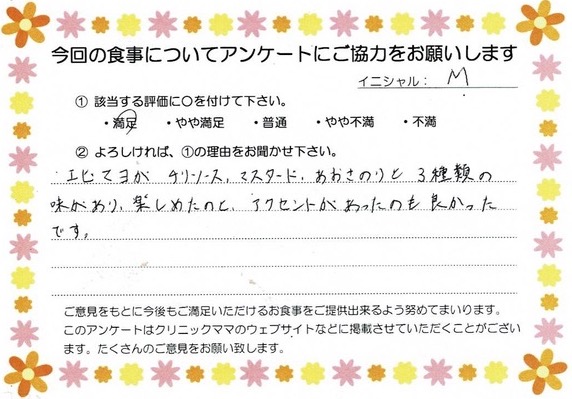 今回の食事についてアンケートにご協力をお願いします
イニシャル： M
① 該当する評価に○を付けて下さい。
・満足 ・やや満足 ・普通 ・やや不満 ・不満
② よろしければ、①の理由をお聞かせ下さい。
エビマヨが チリソース、マスタード、あおさのりと 3種類の
味があり、楽しめたのと、アクセントがあったのも良かった
です。
ご意見をもとに今後もご満足いただけるお食事をご提供出来るよう努めてまいります。
このアンケートはクリニックママのウェブサイトなどに掲載させていただくことがござい
ます。たくさんのご意見をお願い致します。